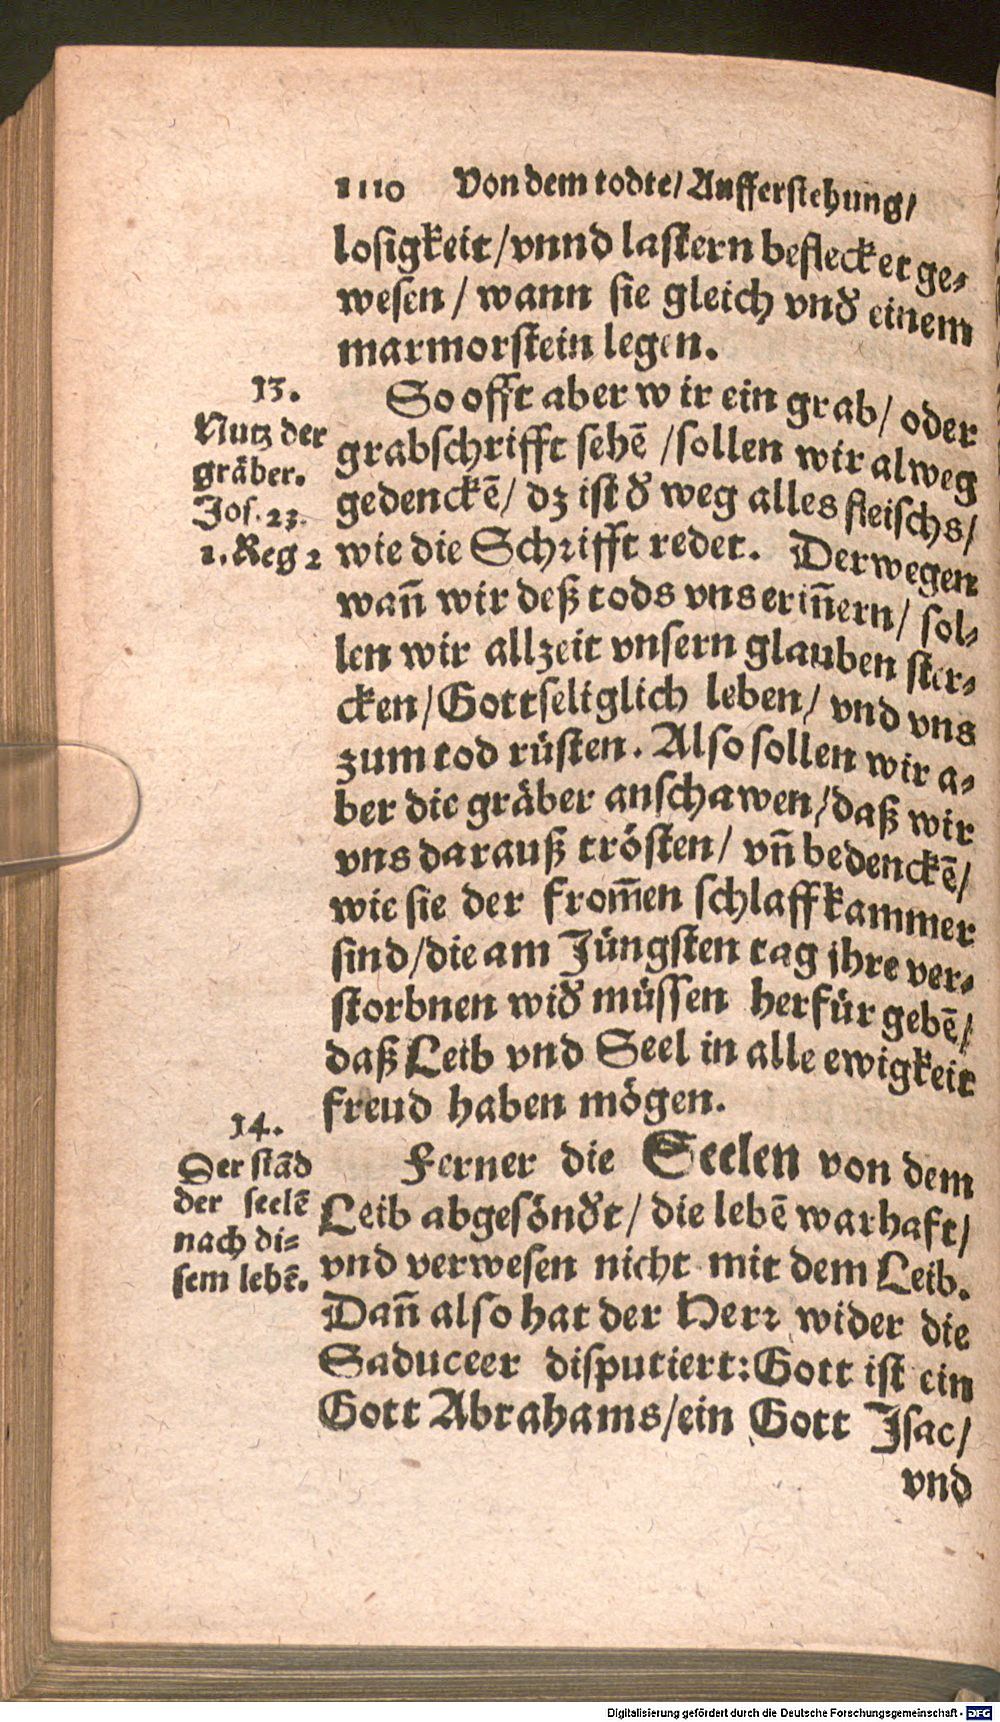 1110 Von dem todte/ Aufferstehung/
losigkeit/ vnnd lastern beflecket ge⸗
wesen / wann sie gleich vnd̕ einem
marmorstein legen.
13.
Nutz der
gräber.
Jos. 23.
1. Reg 2
So offt aber wir ein grab/ oder
grabschrifft sehē /sollen wir alweg
gedenckē/ dz ist d̕ weg alles fleischs/
wie die Schrifft redet. Derwegen
wañ wir deß tods vns eriñern/ sol⸗
len wir allzeit vnsern glauben ster⸗
cken/ Gottseliglich leben/ vnd vns
zum tod rüsten. Also sollen wir a⸗
ber die gräber anschawen/ daß wir
vns darauß trösten/ vñ bedenckē/
wie sie der from̃en schlaffkammer
sind/ die am Jüngsten tag jhre ver⸗
storbnen wid̕ müssen herfür gebē/
daß Leib vnd Seel in alle ewigkeit
freud haben mögen.
14.
Der stād
der seelē
nach di⸗
sem lebē.
Ferner die Seelen von dem
Leib abgesönd̕t/ die lebē warhaft/
vnd verwesen nicht mit dem Leib.
Dañ also hat der Herr wider die
Saduceer disputiert: Gott ist ein
Gott Abrahams/ ein Gott Isac/
vnd
Digitalisierung gefördert durch die Deutsche Forschungsgemeinschaft - DFG